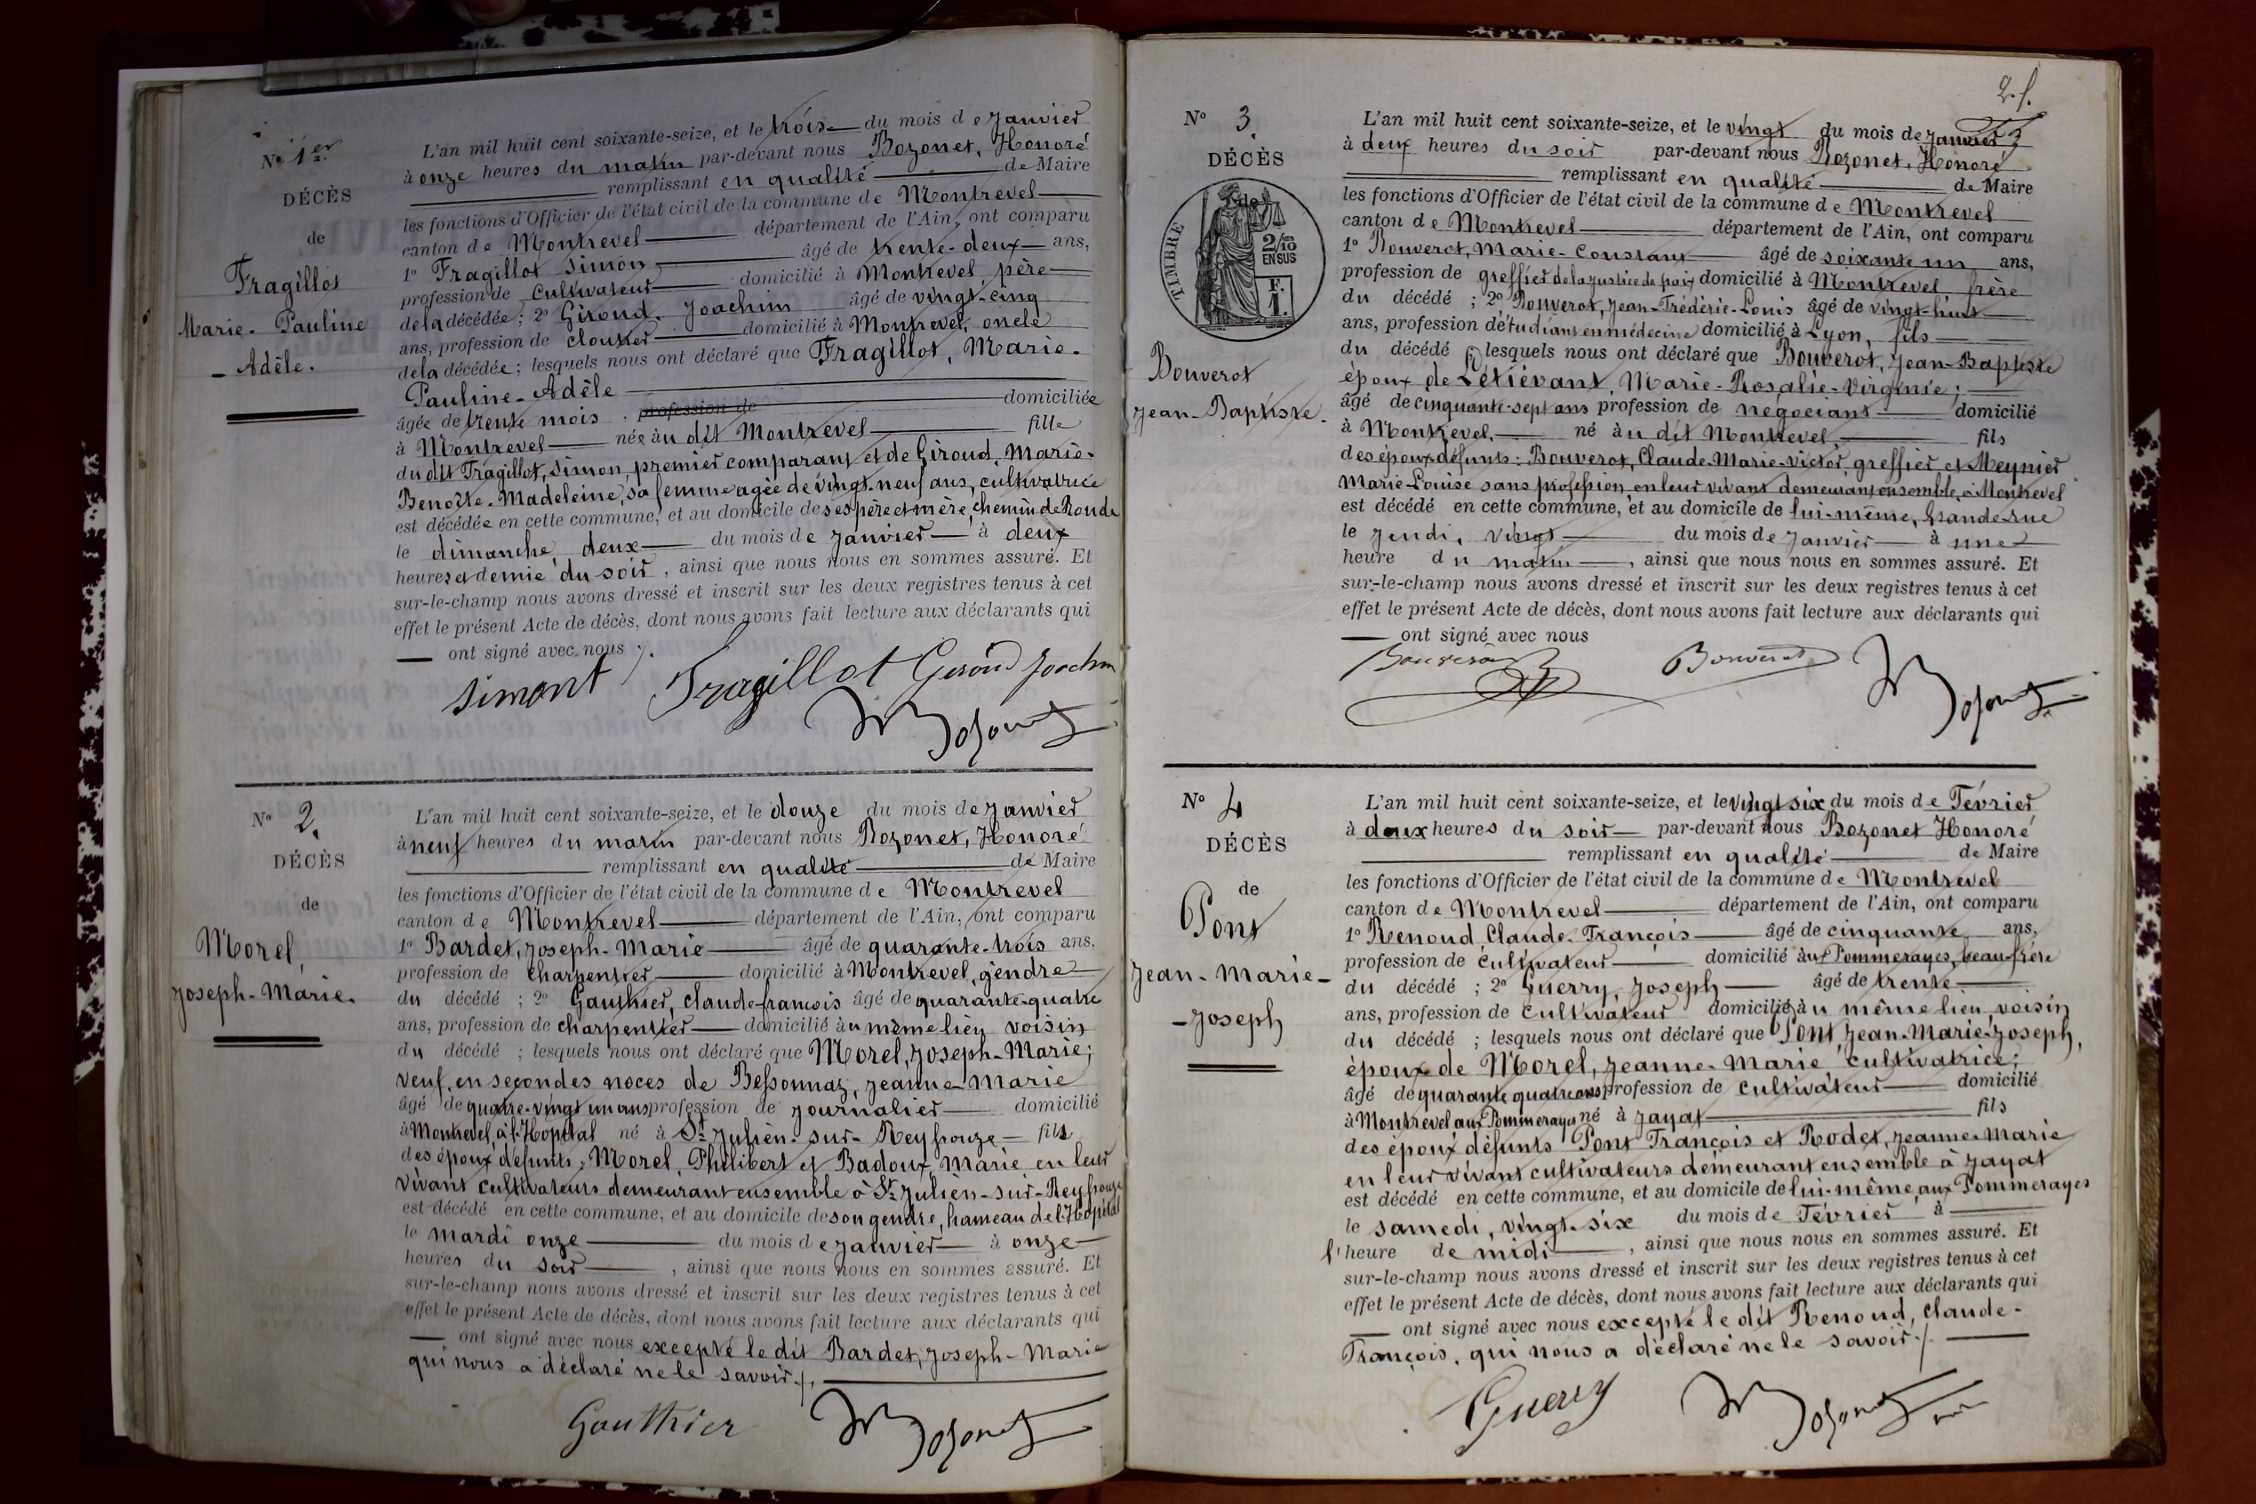 Nº 1er
DÉCÈS
de
Fragillot
Marie-Pauline
-Adèle.
L'an mil huit cent soixante-seize, et le trois du mois de Janvier
à onze heures du matin par-devant nous Bozonet, Honoré
remplissant en qualité de Maire
les fonctions d'Officier de l'état civil de la commune de Montrevel
canton de Montrevel département de l'Ain, ont comparu
1º Fragillot Simon âgé de trente-deux ans,
profession de cultivateur domicilié à Montrevel père
de la décédée ; 2º Giroud, Joachim âgé de vingt-cinq
ans, profession de cloutier domicilié à Montrevel, oncle
de la décédée ; lesquels nous ont déclaré que Fragillot, Marie-
Pauline-Adèle
âgée de trente mois. profession de domiciliée
à Montrevel née àu dit Montrevel fille
du dit Fragillot, Simon, premier comparant et de Giroud, Marie-
Benoîte-Madeleine, sa femme agée de vingt-neuf ans, cultivatrice
est décédée en cette commune, et au domicile de ses père et mère, chemin de Ronde
le dimanche deux du mois de Janvier à deux
heures et demie du soir, ainsi que nous nous en sommes assuré. Et
sur-le-champ nous avons dressé et inscrit sur les deux registres tenus à cet
effet le présent Acte de décès, dont nous avons fait lecture aux déclarants qui
ont signé avec nous ./.
Simont Fragillot Giroud Joachin
Bozonet
Nº 2.
DÉCÈS
de
Morel,
Joseph-Marie.
L'an mil huit cent soixante-seize, et le douze du mois de Janvier
à neuf heures du matin par-devant nous Bozonet, Honoré
remplissant en qualité de Maire
les fonctions d'Officier de l'état civil de la commune de Montrevel
canton de Montrevel département de l'Ain, ont comparu
1º Bardet, Joseph-Marie âgé de quarante-trois ans,
profession de charpentier domicilié à Montrevel, gendre
du décédé ; 2º Gauthier, Claude-françois âgé de quarante-quatre
ans, profession de charpentier domicilié àu même lieu voisin
du décédé ; lesquels nous ont déclaré que Morel, Joseph-Marie;
veuf, en secondes noces de Bessonnaz, Jeanne-Marie
âgé de quatre-vingt un ans profession de Journalier domicilié
à Montrevel, à l'Hopital né à St Julien-sur-Reyssouze fils
des époux défunts, Morel, Philibert et Badoux, Marie en leur
vivant cultivateurs demeurant ensemble à St Julien-sur-Reyssouze
est décédé en cette commune, et au domicile de son gendre, hameau de l'Hopital
le mardi onze du mois de janvier à onze
heures du soir, ainsi que nous nous en sommes assuré. Et
sur-le-champ nous avons dressé et inscrit sur les deux registres tenus à cet
effet le présent Acte de décès, dont nous avons fait lecture aux déclarants qui
ont signé avec nous excepté le dit Bardet, Joseph-Marie
qui nous a déclaré ne le savoir ./.
Gauthier Bozonet
2.f.
Nº 3.
DÉCÈS
de
TIMBRE
2/10 EN SUS
F. 1.
Bouverot
Jean-Baptiste.
L'an mil huit cent soixante-seize, et le vingt du mois de Janvier
à deux heures du soir par-devant nous Bozonet, Honoré
remplissant en qualité de Maire
les fonctions d'Officier de l'état civil de la commune de Montrevel
canton de Montrevel département de l'Ain, ont comparu
1º Bouverot, Marie-Constant âgé de soixante un ans,
profession de greffier de la justice de paix domicilié à Montrevel frère
du décédé ; 2º Bouverot, Jean-Frédéric-Louis âgé de vingt-huit
ans, profession d'étudiant en médecine domicilié à Lyon, fils
du décédé ; lesquels nous ont déclaré que Bouverot, Jean-Baptiste
époux de Létiévant, Marie-Rosalie-Virginie;
âgé de cinquante-sept ans profession de négociant domicilié
à Montrevel, né àu dit Montrevel fils
des époux défunts : Bouverot, Claude-Marie-Victor, greffier et Meynier
Marie-Louise sans profession, en leur vivant demeurant ensemble à Montrevel
est décédé en cette commune, et au domicile de lui-même, Grande-rue
le Jeudi, vingt du mois de Janvier à une
heure du matin, ainsi que nous nous en sommes assuré. Et
sur-le-champ nous avons dressé et inscrit sur les deux registres tenus à cet
effet le présent Acte de décès, dont nous avons fait lecture aux déclarants qui
ont signé avec nous
Bouverot Bouverot Bozonet
Nº 4
DÉCÈS
de
Pont
Jean-Marie-
-Joseph
L'an mil huit cent soixante-seize, et le vingt six du mois de Février
à deux heures du soir par-devant nous Bozonet Honoré
remplissant en qualité de Maire
les fonctions d'Officier de l'état civil de la commune de Montrevel
canton de Montrevel département de l'Ain, ont comparu
1º Renoud, Claude-François âgé de cinquante ans,
profession de cultivateur domicilié àux Pommerayes, beau-frère
du décédé ; 2º Guerry, Joseph âgé de trente
ans, profession de cultivateur domicilié àu même lieu voisin
du décédé ; lesquels nous ont déclaré que Pont, Jean-Marie-Joseph,
époux de Morel, Jeanne-Marie cultivatrice;
âgé de quarante quatre ans profession de cultivateur domicilié
à Montrevel aux Pommerayes né à Jayat fils
des époux défunts Pont François et Rodet, Jeanne-Marie
en leur vivant cultivateurs demeurant ensemble à Jayat
est décédé en cette commune, et au domicile de lui-même, aux Pommerayes
le samedi, vingt-six du mois de Février à
l'heure de midi, ainsi que nous nous en sommes assuré. Et
sur-le-champ nous avons dressé et inscrit sur les deux registres tenus à cet
effet le présent Acte de décès, dont nous avons fait lecture aux déclarants qui
ont signé avec nous excepté le dit Renoud, Claude-
François, qui nous a déclaré ne le savoir ./.
Guerry Bozonet